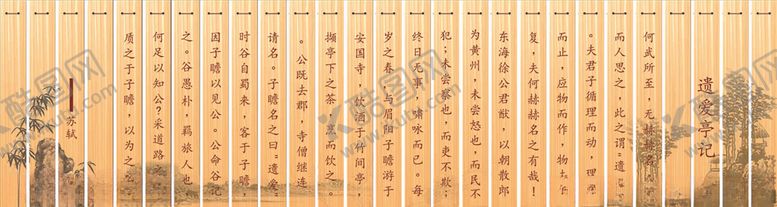 遗爱亭记
何武所至,无赫赫名,
而人思之,此之谓“遗爱”
。夫君子循理而动,理
而止,应物而作,物
复,夫何赫赫名之有哉!
东海徐公君猷,以朝散郎
为黄州,未尝怒也,而民不
犯;未尝察也,而吏不欺;
终日无事,啸咏而已。每
岁之春,与眉阳子瞻游于
安国寺,饮酒于竹间亭,
撷亭下之茶,烹而饮之。
。公既去郡,寺僧继连
请名。子瞻名之曰“遗爱”
时谷自蜀来,客于子瞻
因子瞻以见公。公命谷记
之。谷愚朴,羁旅人也
何足以知公?采道路之
质之于子瞻,以为之
苏轼